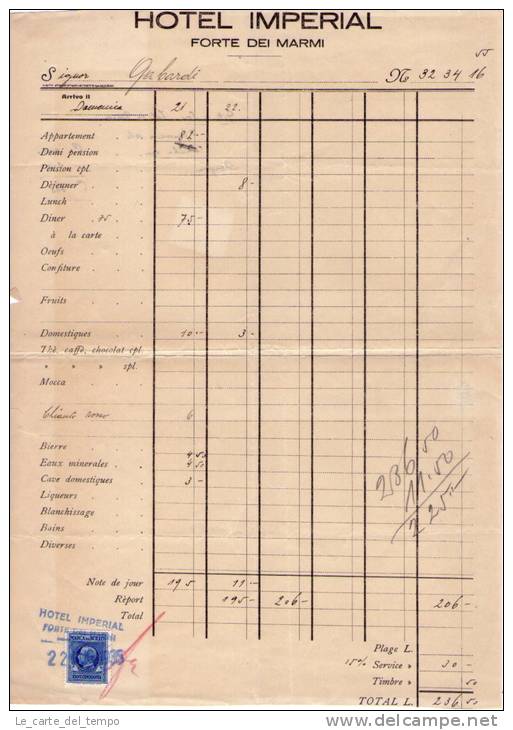 HOTEL IMPERIAL
FORTE DEI MARMI
Signor Gabardi No 32 34 16
Arrivo il Domenica 21 22
Appartement 82 -
Demi pension
Pension cpl.
Déjeuner 8 -
Lunch
Diner 75 75 -
à la carte
Oeufs
Confiture
Fruits
Domestiques 10 - 3 -
Thè, caffè, chocolat cpl.
» » » spl.
Mocca
Chianti rosso 6
Bierre 4 50
Eaux minerales 4 50
Cave domestiques 3 -
Liqueurs
Blanchissage
Bains
Diverses
236 50
11.50
225 -
Note de jour 195 11 -
Rèport 195 - 206 - 206 -
Total
HOTEL IMPERIAL
FORTE DEI MARMI
22 35
MARCA DA BOLLO
Plage L.
15% Service » 30 -
Timbre » 50
TOTAL L. 236 50
Le_carte_del_tempo
www.delcampe.net